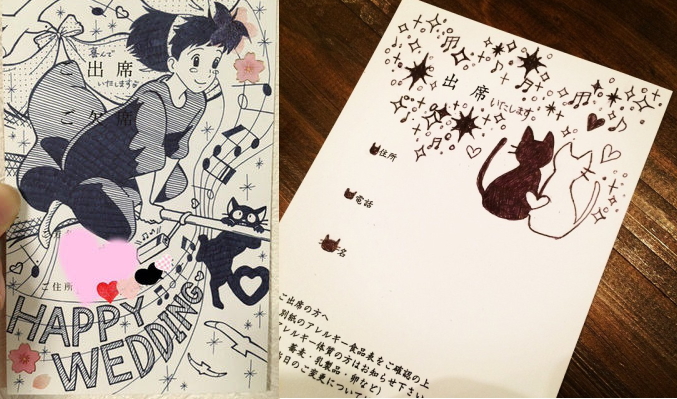 喜んで
ご出席
いたします
ご欠席
ご住所
HAPPY
WEDDING
出席
いたします
住所
電話
名
ご出席の方へ
別紙のアレルギー食品表をご確認の上
アレルギー体質の方はお知らせ下さい
蕎麦・乳製品・卵など)
当日のご変更について